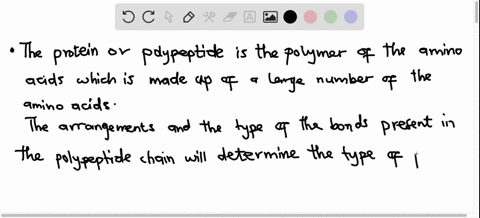 • The protein or polypeptide is the polymer of the amino
acids which is made up of a large number of the
amino acids.
The arrangements and the type of the bonds present in
the polypeptide chain will determine the type of